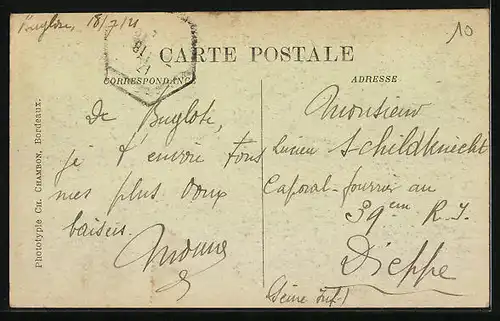 Buglose, 18/7/21
10
CARTE POSTALE
CORRESPONDANCE
ADRESSE
De Buglose,
je t'envoie tous
mes plus doux
baisers.
Monsieur
Lucien Schildknecht
Caporal-fourrier au
39em R.I.
Dieppe
(Seine Inf.)
Phototypie CH. CHAMBON, Bordeaux.